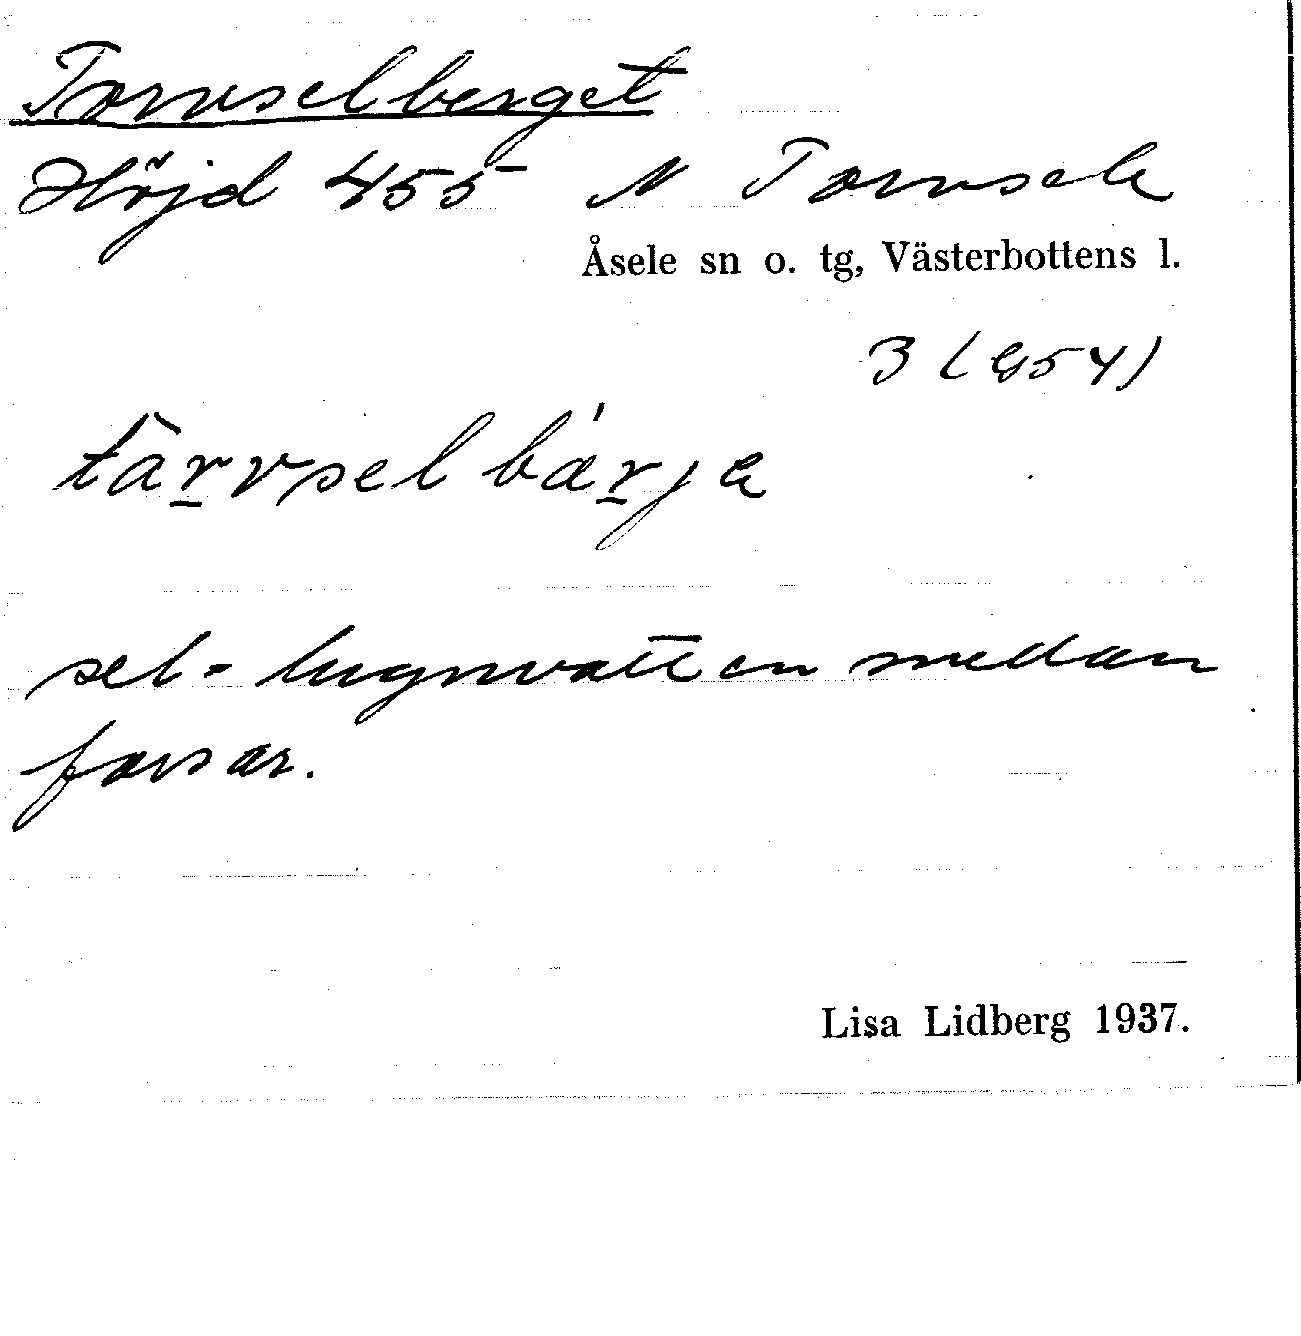 Torvselberget
Höjd 455 N Torvsele
Åsele sn o. tg, Västerbottens l.
3 (G54)
tàrvselbárja
sel = lugnvatten medan
forsar.
Lisa Lidberg 1937.